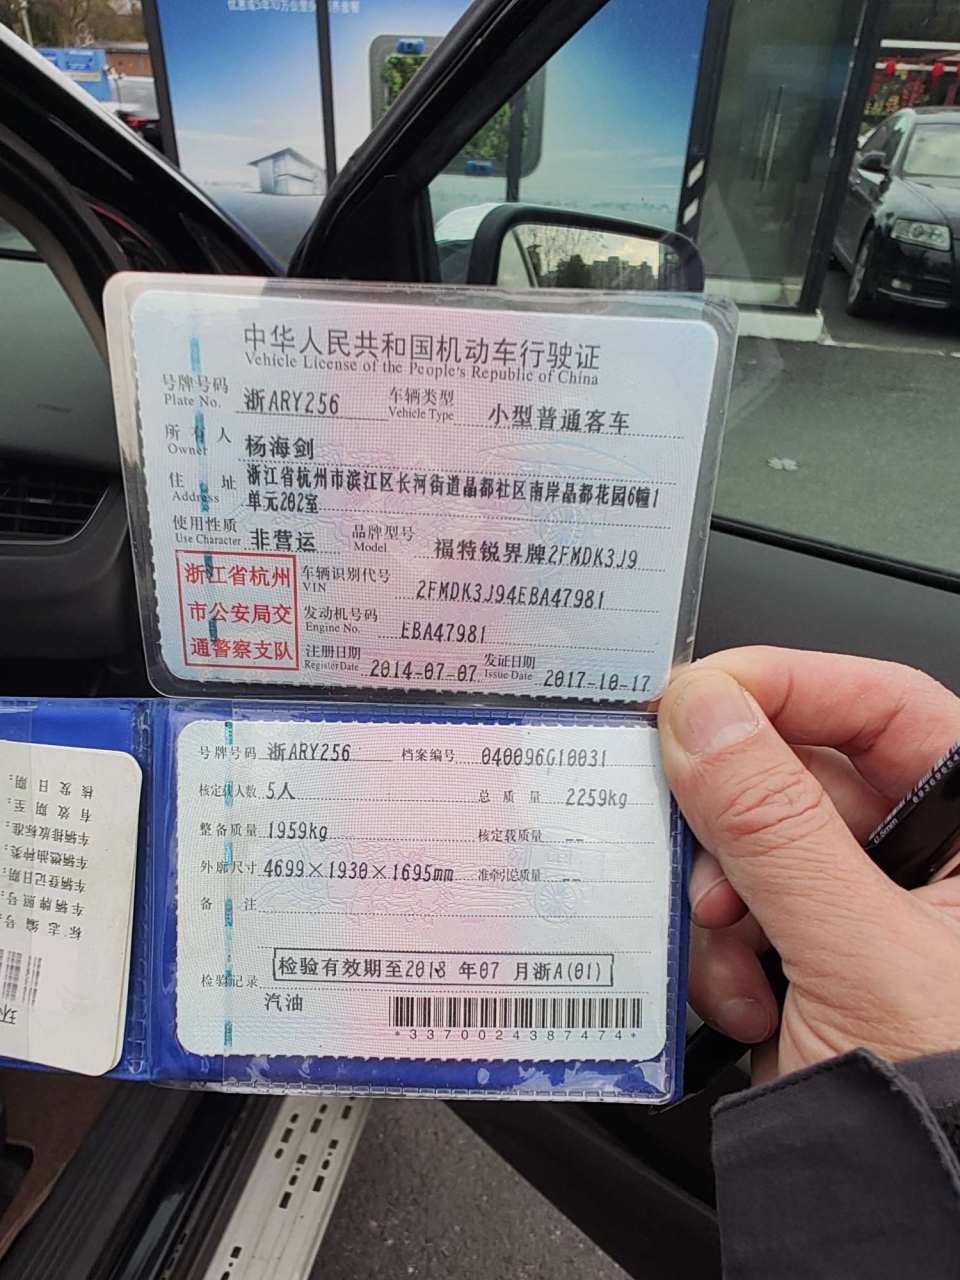 中华人民共和国机动车行驶证
Vehicle License of the People's Republic of China
号牌号码 浙ARY256 车辆类型 小型普通客车
Plate No. Vehicle Type
所有人 杨海剑
Owner
住址 浙江省杭州市滨江区长河街道晶都社区南岸晶都花园6幢1
Address 单元202室
使用性质 非营运 品牌型号 福特锐界牌2FMDK3J9
Use Character Model
浙江省杭州
市公安局交
通警察支队
车辆识别代号 2FMDK3J94EBA47981
VIN
发动机号码 EBA47981
Engine No.
注册日期 2014-07-07 发证日期 2017-10-17
Register Date Issue Date
号牌号码 浙ARY256 档案编号 040096G10031
核定载人数 5人 总质量 2259kg
整备质量 1959kg 核定载质量 --
外廓尺寸 4699×1930×1695mm 准牵引总质量 --
备注
检验记录 检验有效期至2018年07月浙A(01)
汽油
*3370024387474*
标志编号:
车辆牌照号:
车辆登记日期:
车辆燃油种类:
车辆排放标准:
有效期至:
核发日期:
环
0.5mm